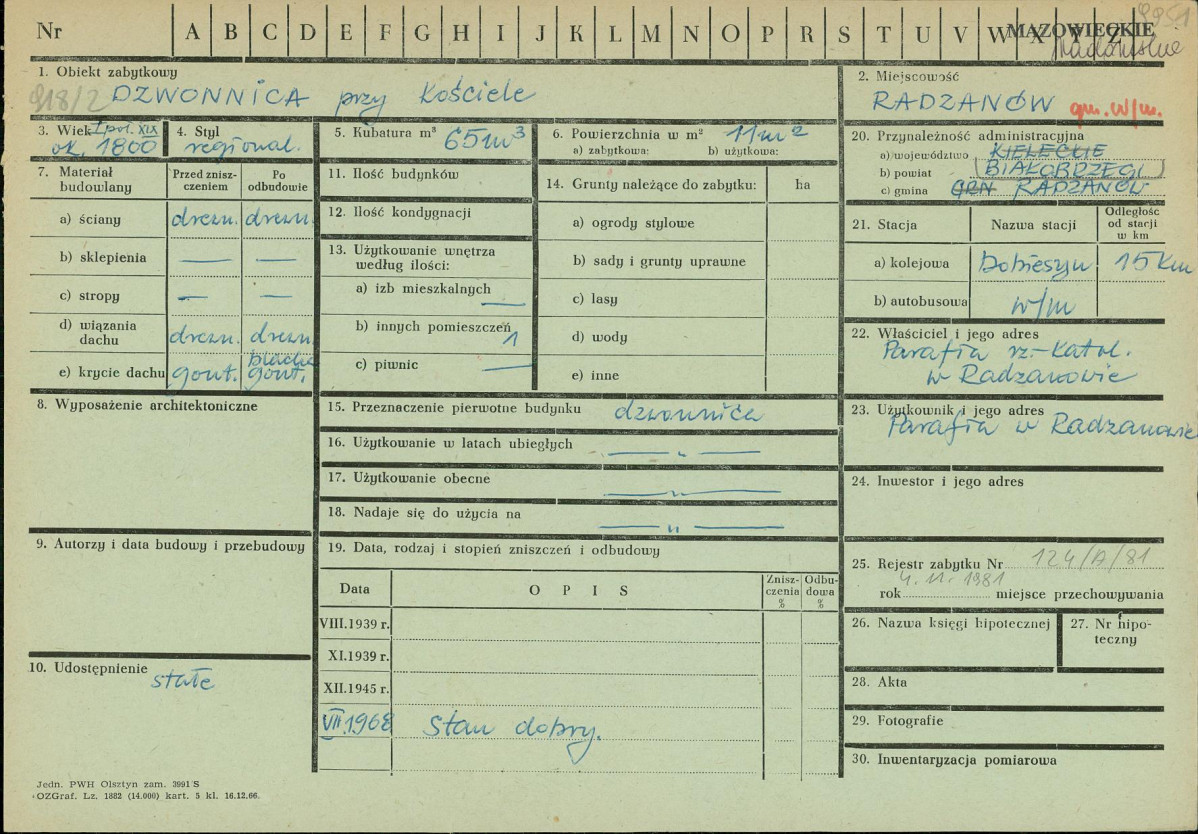 Nr A B C D E F G H I J K L M N O P R S T U V W X Y Z
MAZOWIECKIE
1. Obiekt zabytkowy
DZWONNICA przy Kościele
2. Miejscowość
RADZANÓW gm. w/m.
3. Wiek I poł. XIX
ok. 1800
4. Styl
regional.
5. Kubatura m³ 65m³
6. Powierzchnia w m² 11m²
a) zabytkowa: b) użytkowa:
7. Materiał budowlany
Przed zniszczeniem
Po odbudowie
a) ściany drewn. drewn.
b) sklepienia — —
c) stropy — —
d) wiązania dachu drewn. drewn.
e) krycie dachu gont. blacha gont.
8. Wyposażenie architektoniczne
9. Autorzy i data budowy i przebudowy
10. Udostępnienie
stałe
11. Ilość budynków
12. Ilość kondygnacji
13. Użytkowanie wnętrza
według ilości:
a) izb mieszkalnych —
b) innych pomieszczeń 1
c) piwnic —
14. Grunty należące do zabytku: ha
a) ogrody stylowe
b) sady i grunty uprawne
c) lasy
d) wody
e) inne
15. Przeznaczenie pierwotne budynku dzwonnica
16. Użytkowanie w latach ubiegłych — „ —
17. Użytkowanie obecne — „ —
18. Nadaje się do użycia na — „ —
19. Data, rodzaj i stopień zniszczeń i odbudowy
Data O P I S Zniszczenia % Odbudowa %
VIII.1939 r.
XI.1939 r.
XII.1945 r.
VII.1968 Stan dobry.
20. Przynależność administracyjna
a) województwo KIELECKIE
b) powiat BIAŁOBRZEGI
c) gmina GRN RADZANÓW
21. Stacja Nazwa stacji Odległość od stacji w km
a) kolejowa Dobieszyn 15 km
b) autobusowa w/m
22. Właściciel i jego adres
Parafia rz.-katol.
w Radzanowie
23. Użytkownik i jego adres
Parafia w Radzanowie
24. Inwestor i jego adres
25. Rejestr zabytku Nr 124/A/81
rok 4.11.1981 miejsce przechowywania
26. Nazwa księgi hipotecznej
27. Nr hipoteczny
28. Akta
29. Fotografie
30. Inwentaryzacja pomiarowa
Jedn. PWH Olsztyn zam. 3991 S
OZGraf. Lz. 1882 (14.000) kart. 5 kl. 16.12.66.